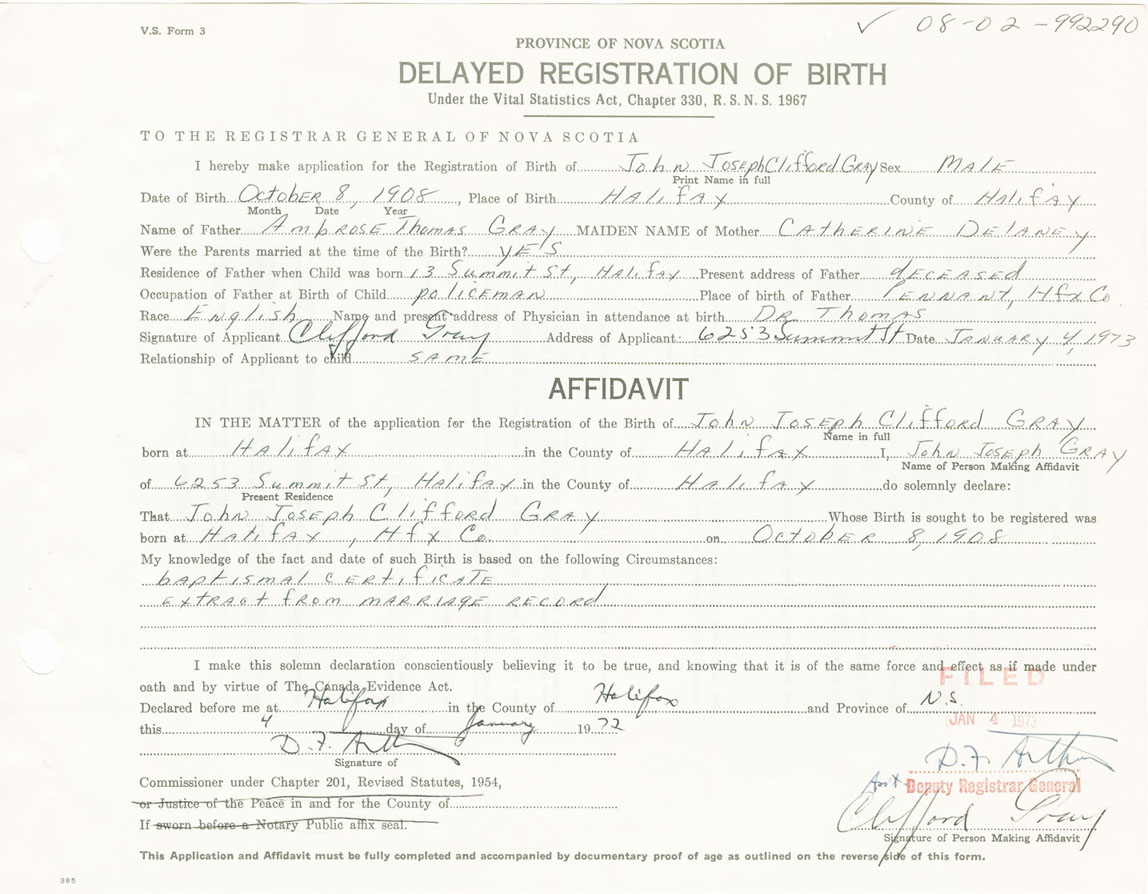 V.S. Form 3
✓ 08-02-992290
PROVINCE OF NOVA SCOTIA
DELAYED REGISTRATION OF BIRTH
Under the Vital Statistics Act, Chapter 330, R. S. N. S. 1967
TO THE REGISTRAR GENERAL OF NOVA SCOTIA
I hereby make application for the Registration of Birth of John Joseph Clifford Gray Sex Male
Print Name in full
Date of Birth October 8, 1908, Place of Birth Halifax County of Halifax
Month Date Year
Name of Father Ambrose Thomas Gray MAIDEN NAME of Mother Catherine Delaney
Were the Parents married at the time of the Birth? yes
Residence of Father when Child was born 13 Summit St, Halifax Present address of Father deceased
Occupation of Father at Birth of Child policeman Place of birth of Father Pennant, Hfx Co
Race English Name and present address of Physician in attendance at birth Dr Thomas
Signature of Applicant Clifford Gray Address of Applicant: 6253 Summit St Date January 4, 1973
Relationship of Applicant to child same
AFFIDAVIT
IN THE MATTER of the application for the Registration of the Birth of John Joseph Clifford Gray
Name in full
born at Halifax in the County of Halifax I, John Joseph Gray
Name of Person Making Affidavit
of 6253 Summit St, Halifax in the County of Halifax do solemnly declare:
Present Residence
That John Joseph Clifford Gray Whose Birth is sought to be registered was
born at Halifax, Hfx Co. on October 8, 1908
My knowledge of the fact and date of such Birth is based on the following Circumstances:
baptismal certificate
extract from marriage record
I make this solemn declaration conscientiously believing it to be true, and knowing that it is of the same force and effect as if made under
oath and by virtue of The Canada Evidence Act.
FILED
Declared before me at Halifax in the County of Halifax and Province of N.S.
JAN 4 1973
this 4 day of January 1972
D.F. Arthur
Signature of
D.F. Arthur
Commissioner under Chapter 201, Revised Statutes, 1954,
Ass't Deputy Registrar General
or Justice of the Peace in and for the County of
Clifford Gray
If sworn before a Notary Public affix seal.
Signature of Person Making Affidavit
This Application and Affidavit must be fully completed and accompanied by documentary proof of age as outlined on the reverse side of this form.
385